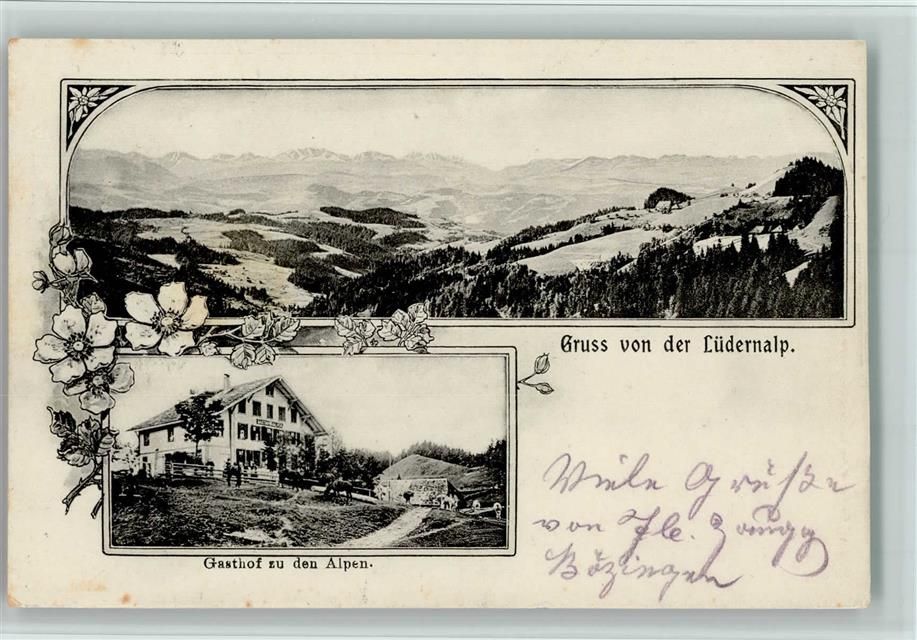 Gruss von der Lüdernalp.
Gasthof zu den Alpen.
Viele Grüße
von Fb. Zaugg
Bözingen